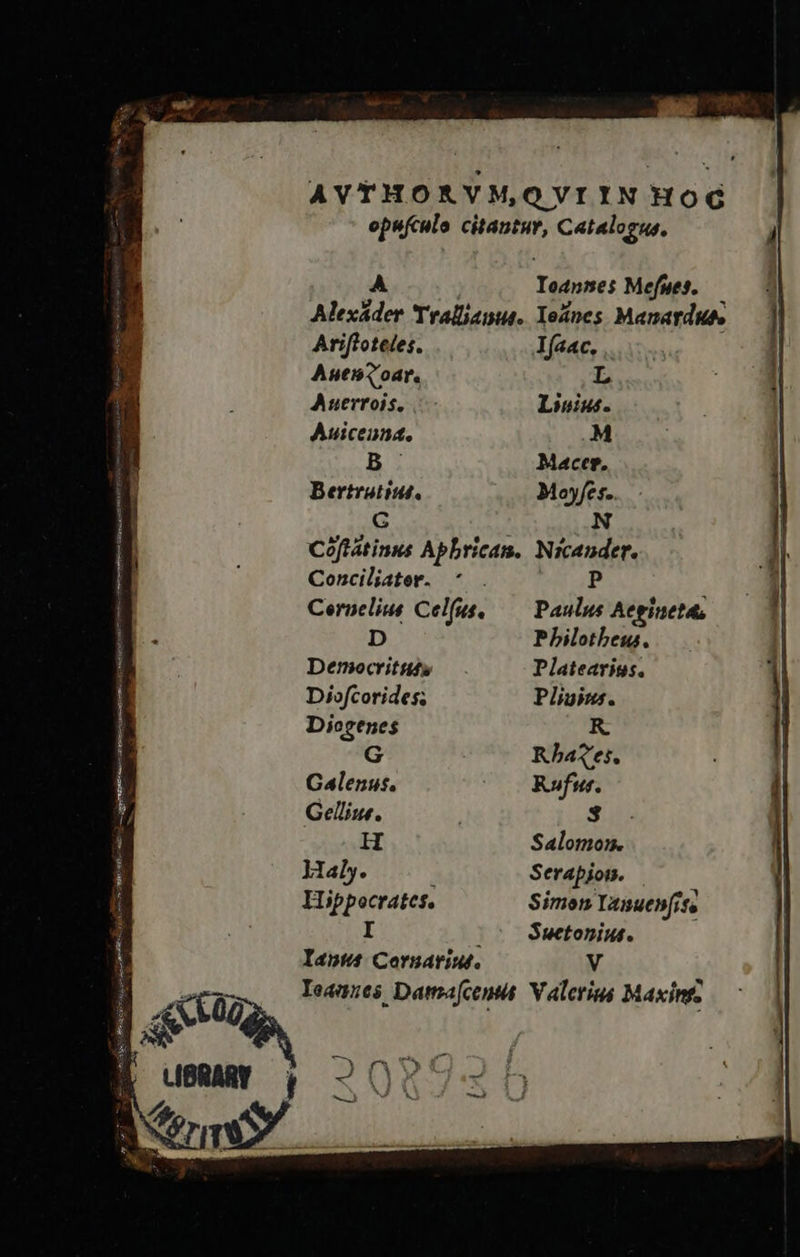 AVTHORVM, QVI IN HOC
opuſculo citantur, Catalogus.
A
Alexãder Trallianus.
Ariſtoteles.
Auenzoar.
Auerrois.
Auicenna.
B
Bertrutius.
C
Cõſtãtinus Aphrican.
Conciliator.
Cornelius Celſus.
D
Democritus.
Dioſcorides.
Diogenes
G
Galenus.
Gellius.
H
Haly.
Hippocrates.
I
Ianus Cornarius.
Ioannes Damaſcenus
Ioannes Meſues.
Ioãnes Manardus.
Iſaac.
L
Liuius.
M
Macer.
Moyſes.
N
Nicander.
P
Paulus Aegineta.
Philotheus.
Platearius.
Plinius.
R
Rhazes.
Rufus.
S
Salomon.
Serapion.
Simon Ianuenſis.
Suetonius.
V
Valerius Maxim.
LIBRARY